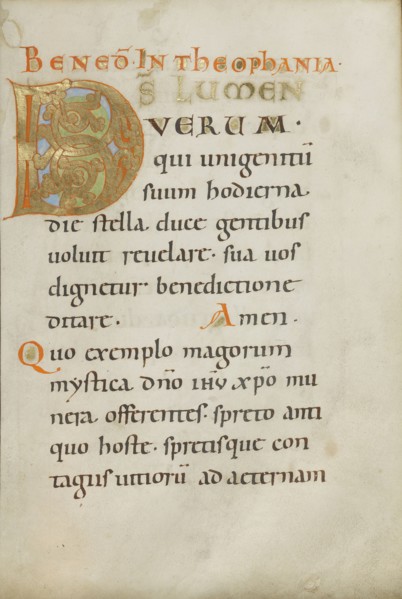 BENED̄ · IN THEOPHANIA ·
DS̄ LUMEN
VERUM ·
qui unigenitū
suum hodierna
die stella duce gentibus
voluit revelare · sua vos
dignetur benedictione
ditare · Amen ·
Quo exemplo magorum
mystica dn̄o ihū xp̄o mu
nera offerentes · spreto anti
quo hoste · spretisque con
tagiis vitiorū ad aeternam